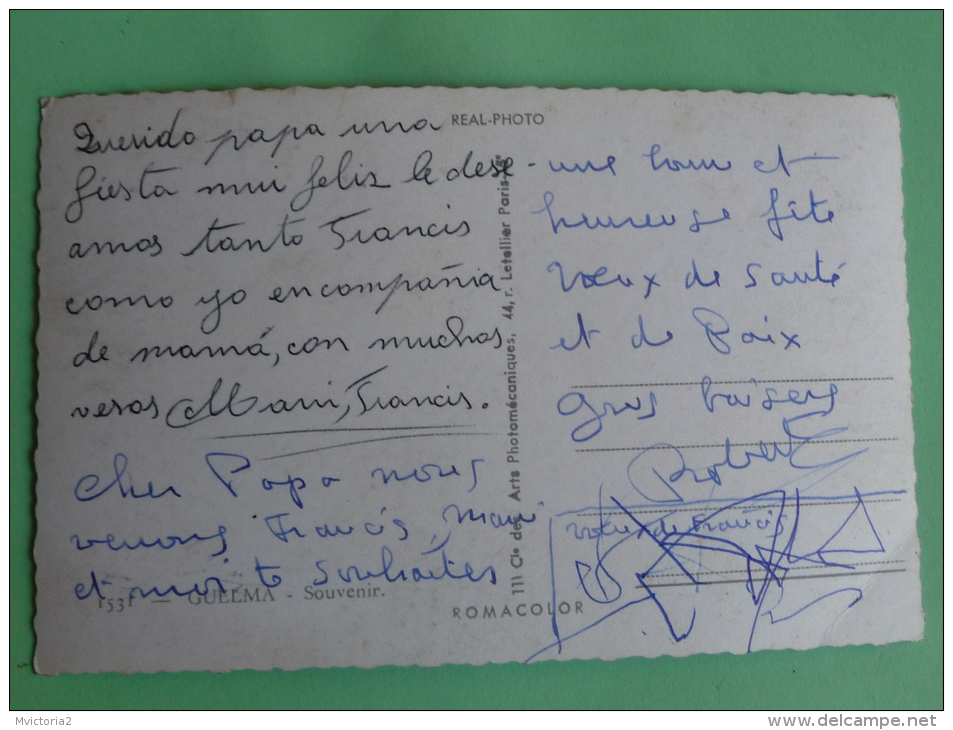 REAL-PHOTO
Querido papa una
fiesta mui feliz le dese-
amos tanto Francis
como yo en compañia
de mamá, con muchos
vesos Mani, Francis.
Cher Papa nous
venons Francis, Mani
et moi te souhaites
une bonne et
heureuse fête
Vœux de santé
et de Paix
Gros baisers
Robert
vœux de Francis
111 Cie des Arts Photomécaniques, 44, r. Letellier Paris-15e
1531 — GUELMA - Souvenir.
ROMACOLOR
Mvictoria2
www.delcampe.net